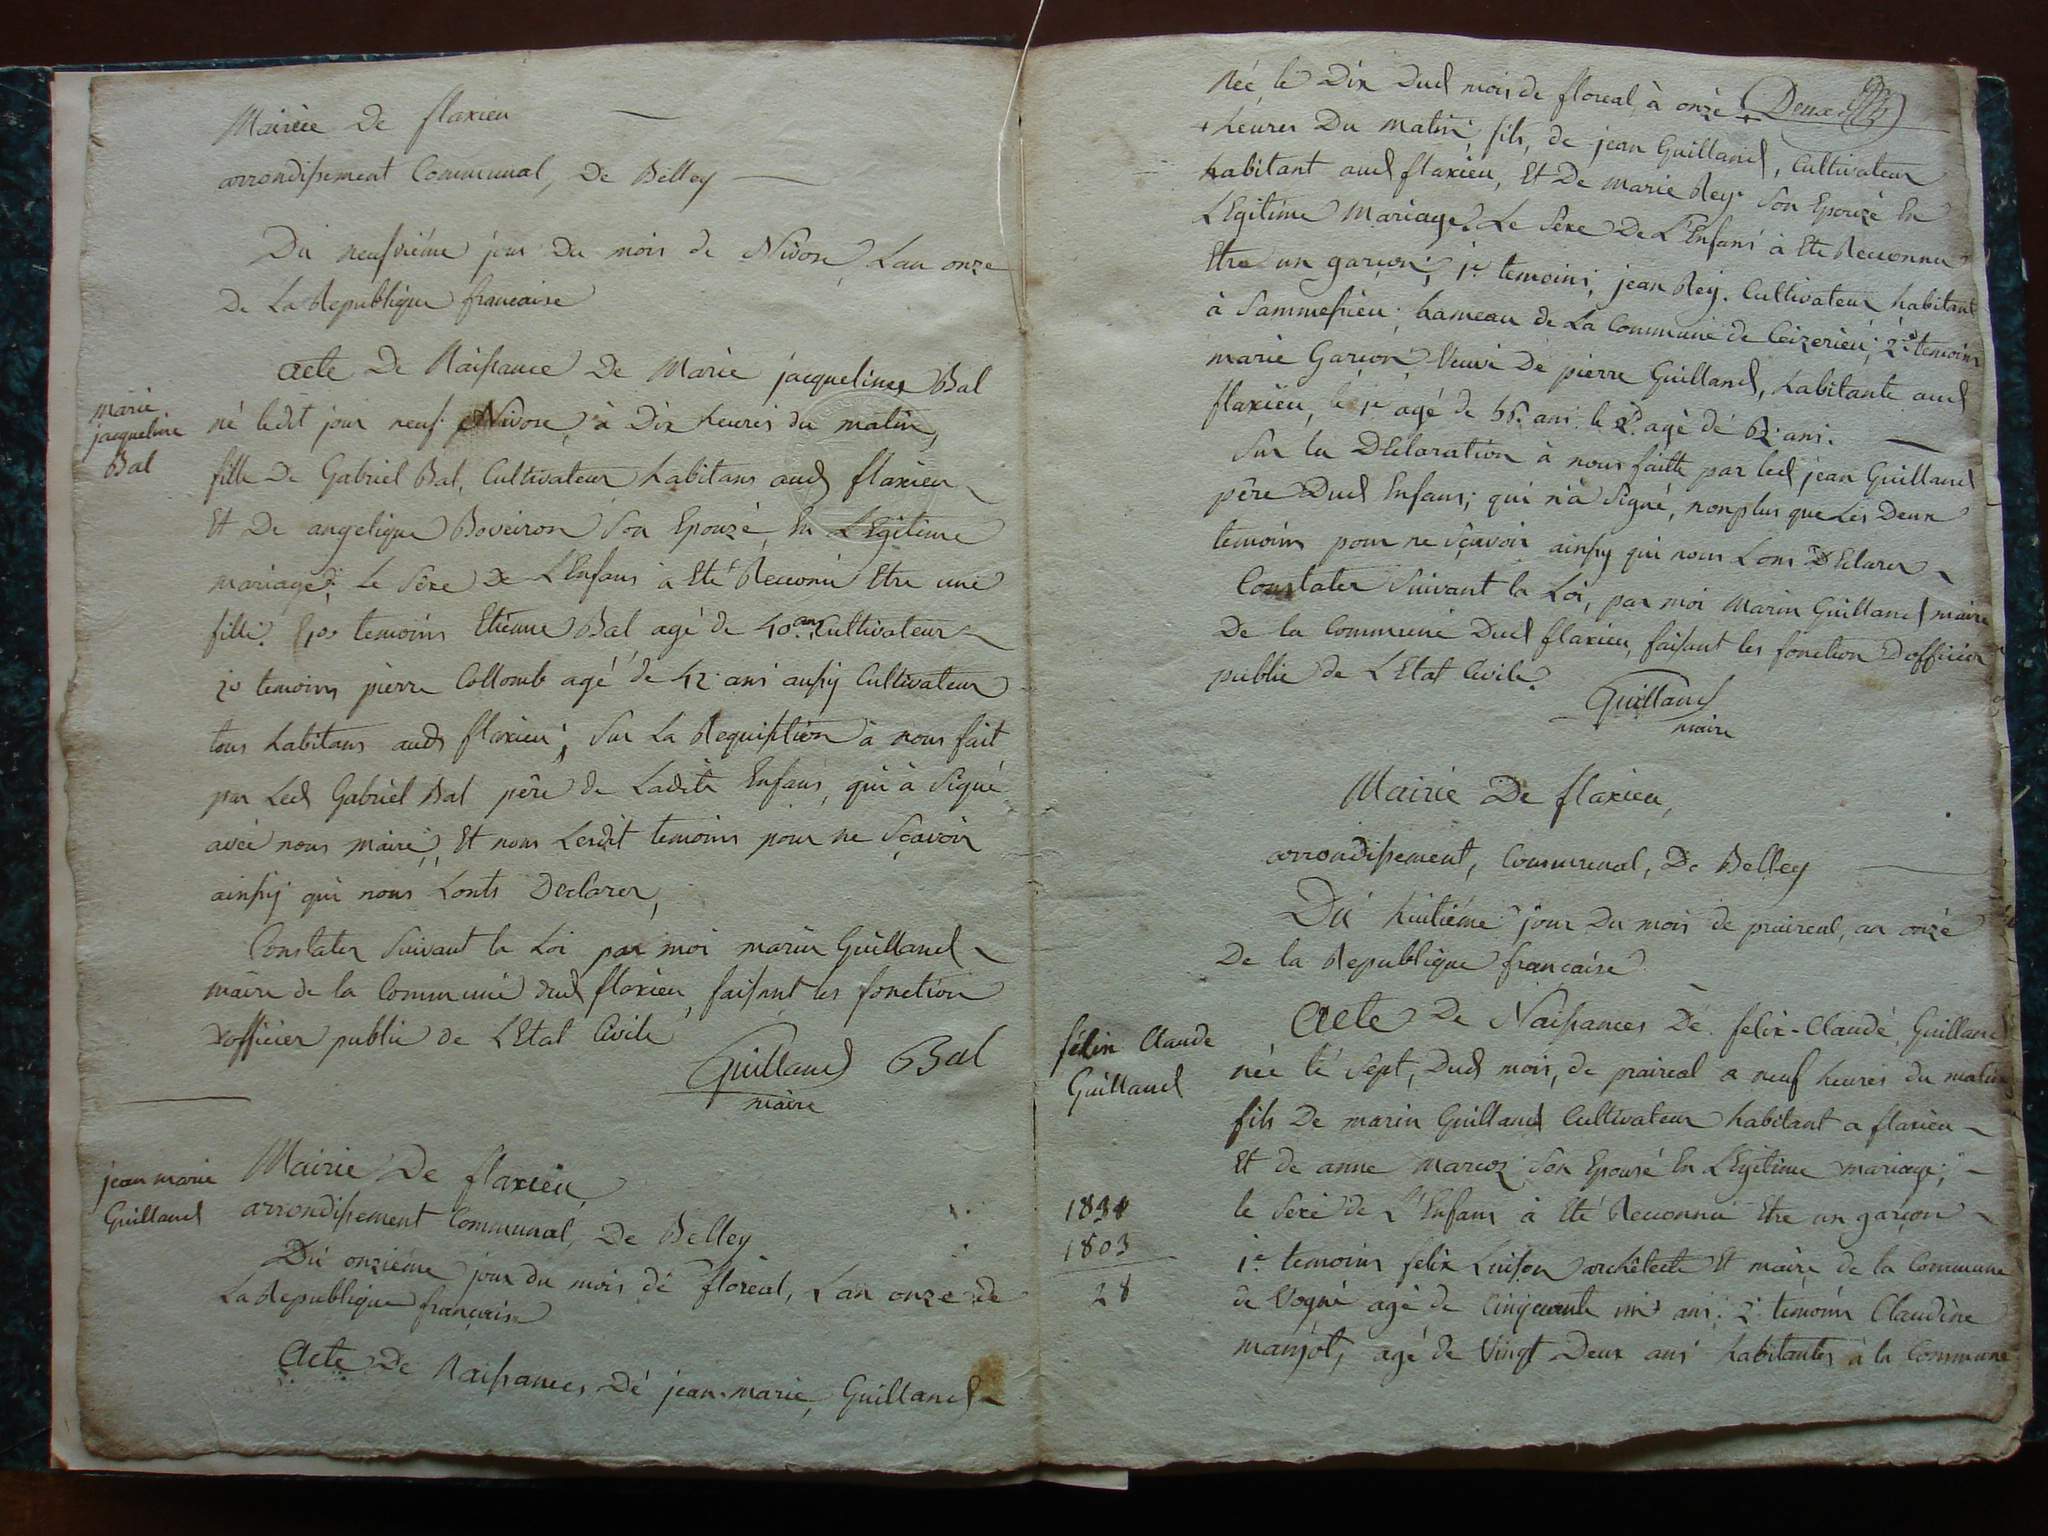 Mairiee De flaxieu
arrondissement Communal, De Belley
Du neufviéme jour du mois de Nivose, Lan onze
De La Republique francaise
acte De Naissance De Marie jacquelines Bal
marie
jacqueline
Bal
né ledit jour neuf Nivose, à Dix heures du matin,
fille De Gabriel Bal, Cultivateur habitans aud flaxieu
Et De angelique Boveiron Son Epouzé, En LEgitime
mariage; Le Séxe De L'Enfans à Eté Reconnu Etre une
fille. temoins Etienne Bal agé de 40 ans Cultivateur
2o temoins pierre Collomb agé de 42 ans aussy Cultivateur
tous habitans aud flaxieu; Sur La Requisition à nous fait
par Led Gabriel Bal père de Ladite Enfans, qui à Signé
avec nous maire, Et nons Lesdit temoins pour ne Sçavoir
ainssy qui nous Lonts Declarer,
Constater Suivant la Loi par moi marin Guilland
maire de la Commune dud flaxieu, faisant les fonction
dofficier public de LEtat Civile
Guilland Bal
maire
jean marie
Guilland
Mairie De flaxieu,
arrondissement Communal, De Belley
Du onziéme jour du mois dé floréal, Lan onze de
La Republique française
Acte De Naissances Dé jean-marie, Guilland
Née, le Dix Dud mois de floreal, à onze + Deux
+ heures Du matin; fils, de jean Guilland, Cultivateur
habitant aud flaxieu, Et De marie Rey Son Epouzé En
LEgitime Mariage. Le Séxe De L'Enfans à Eté Reconnu
Etre un garçon; 1er temoins, jean Rey. Cultivateur habitant
à Sammesieu; hameau de La Commune de Ceizerieu; 2d temoins
marie Garçon Veuve De pierre Guilland, habitante aud
flaxieu, le 1er agé de ans. le 2d agé de 62 ans.
Sur la DEclaration à nous faitte par led jean Guilland
père Dud Enfans; qui n'à Signé, nonplus que Les Deux
temoins pour ne Sçavoir ainssy qui nous Lons DEclarer
Constater Suivant la Loi, par moi Marin Guilland maire
De la Commune Dud flaxieu, faisant les fonction Dofficier
public de LEtat Civile.
Guilland
maire
Mairie De flaxieu,
arrondissement, Communal, De Belley
Du huitiéme jour Du mois de praireal, an onzé
De la Republique francaise
félix Claude
Guilland
Acte De Naissances Dé. felix-Claudé, Guilland
née lé Sept, Dud mois, de praireal a neuf heures du matin
fils De marin Guilland Cultivateur habitant a flaxieu
Et de anne Marcoz Son Epousé En LEgitime mariage;
le Séxé de L'Enfans à Eté Reconnu Etre un garçon
1831
1803
28
1er temoins felix Luison architecte Et maire de la Commune
de Vogné agé de Cinquante ans. 2e temoins Claudine
manjot, agé de Vingt Deux ans habitantes à la Commune